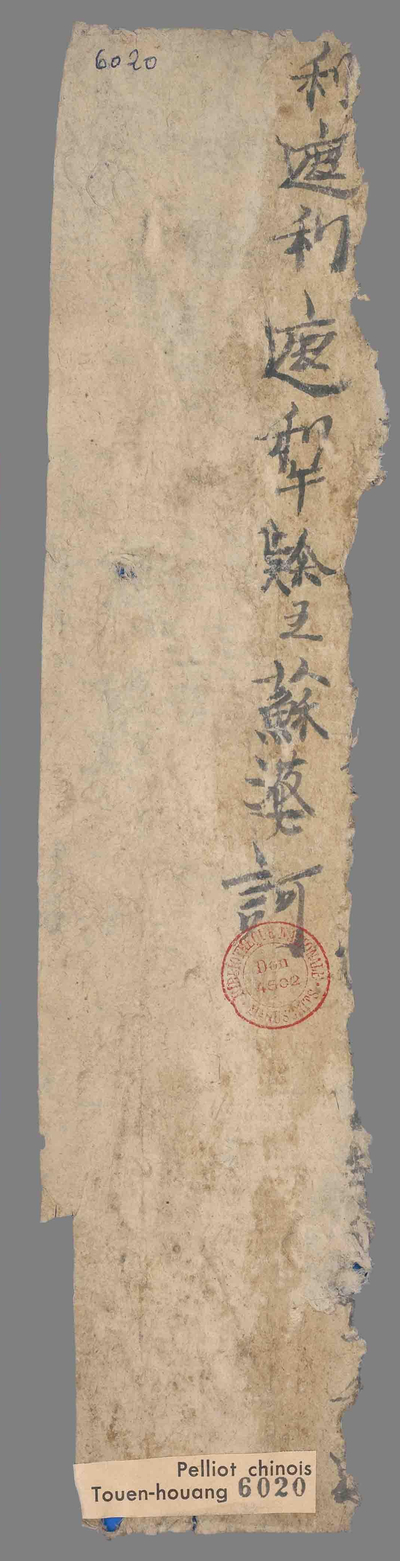 6020
利遮利遮犁賖五蘇婆訶
BIBLIOTHÈQUE NATIONALE
Don
4502
MANUSCRITS
Pelliot chinois
Touen-houang 6020